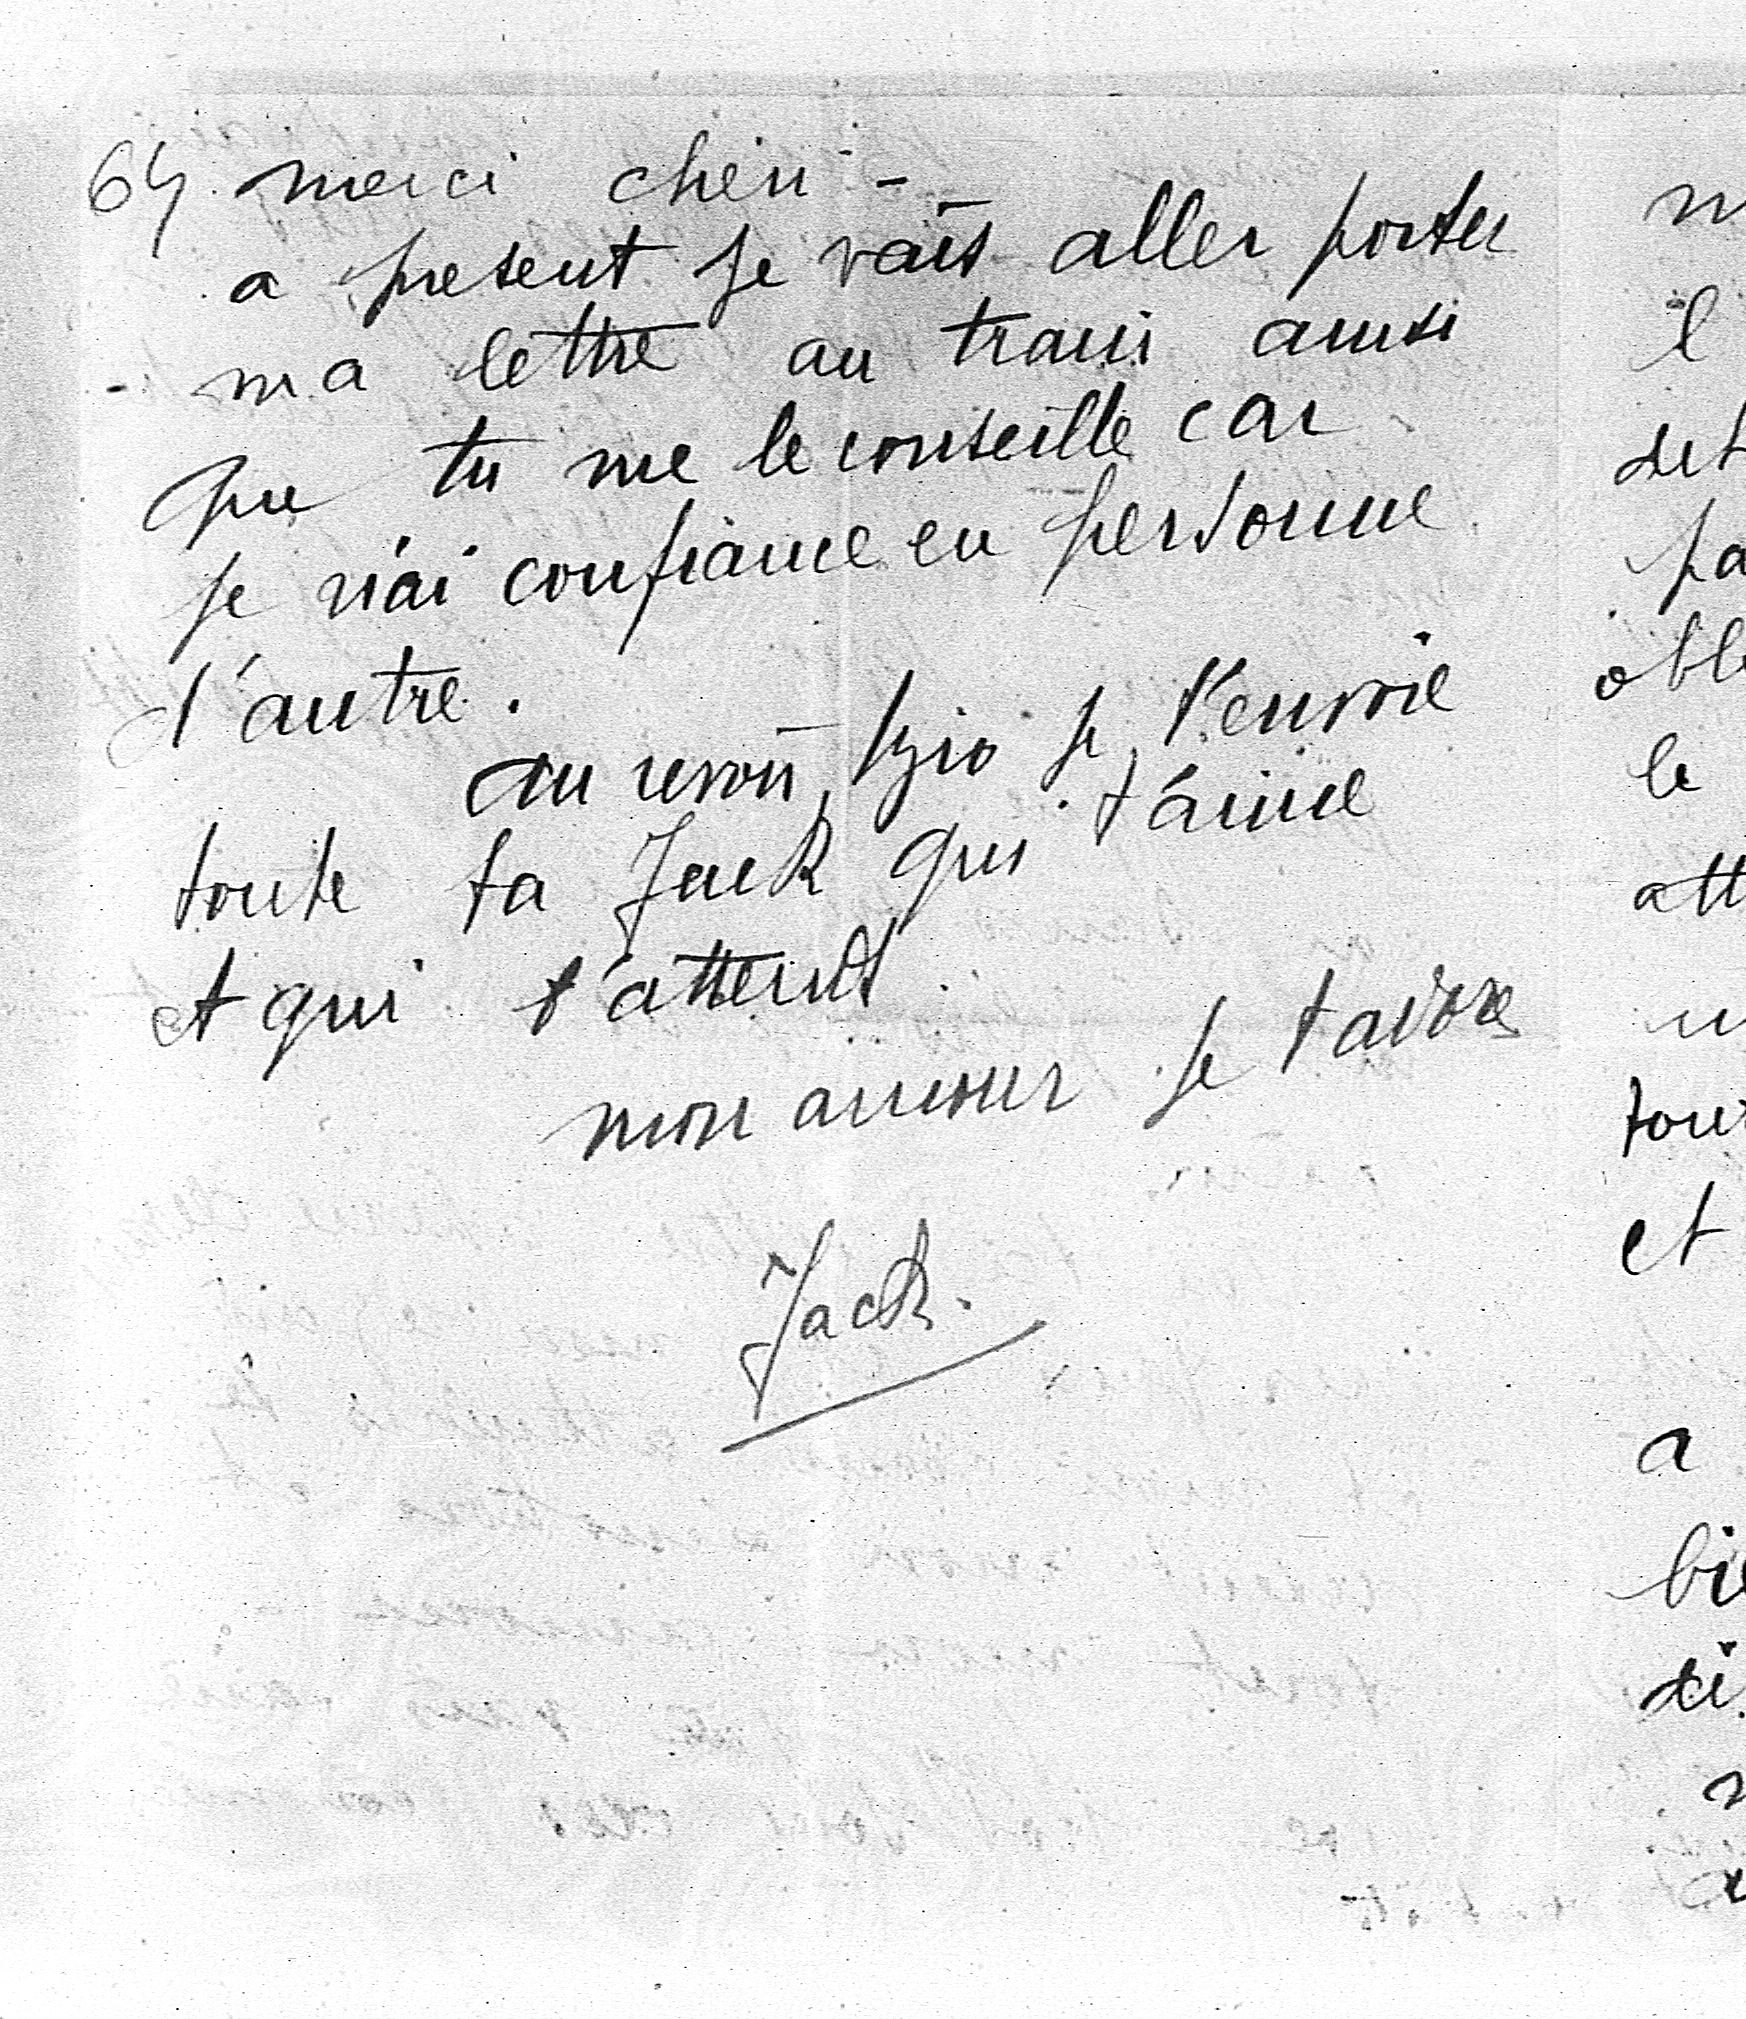 64 merci chéri -
a present je vais aller porter
ma lettre au train ainsi
que tu me le conseille car
je n'ai confiance en personne
d'autre.
au revoir, je t'envoie
toute ta Jack qui t'aime
et qui t'attend.
mon amour je t'adore
Jack.
m
l
det
pa
obl
le
att
tou
et
a
bie
si